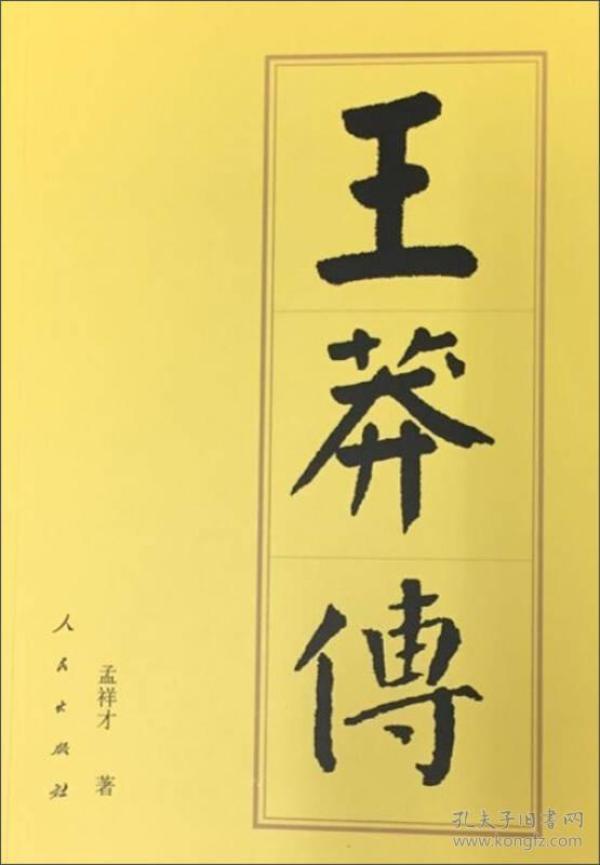 王莽傳
孟祥才 著
人民出版社
孔夫子旧書网
www.kongfz.com